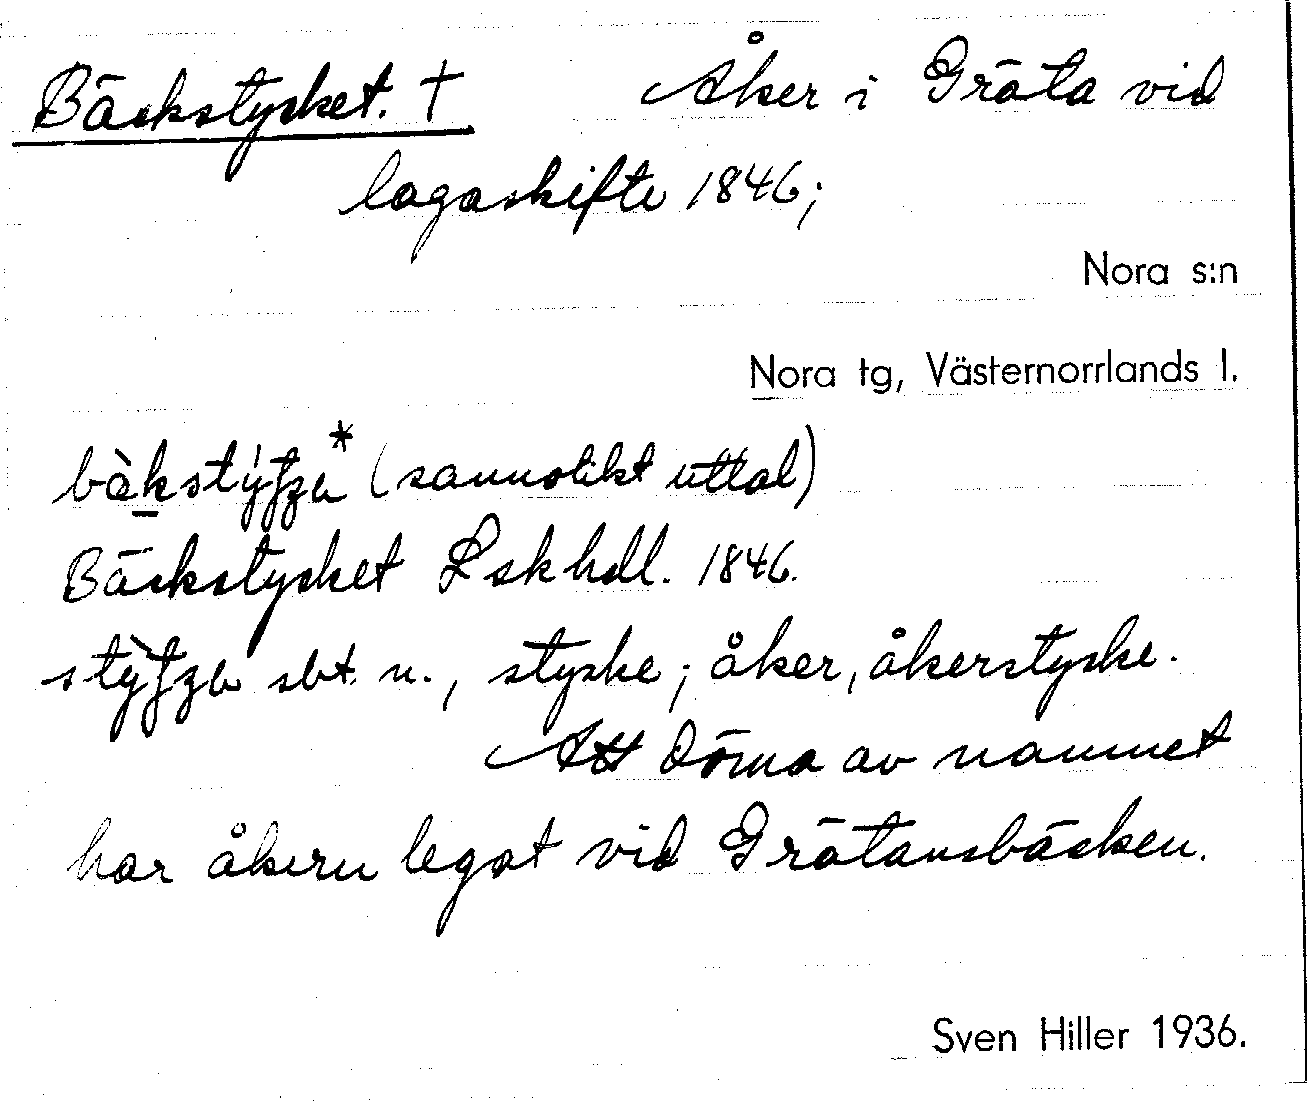 Bäckstycket. † Åker i Gräta vid
lagaskifte 1846;
Nora s:n
Nora tg, Västernorrlands l.
(sannolikt uttal)
Bäckstycket Lskhdl. 1846.
sbt. n., stycke; åker, åkerstycke.
Att döma av namnet
har åkern legat vid Grätansbäcken.
Sven Hiller 1936.